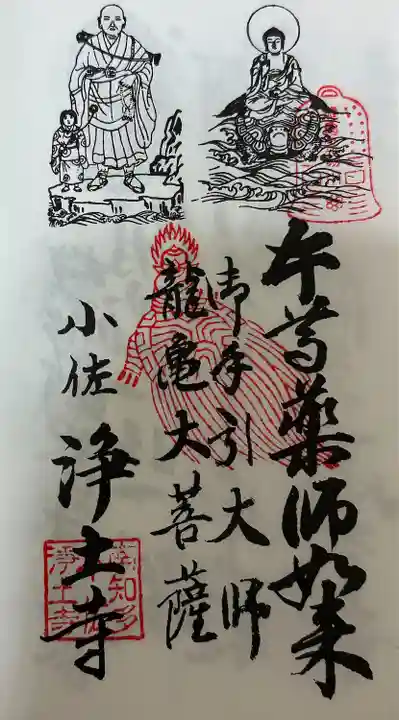 本尊薬師如来
御手引大師
龍亀大菩薩
小佐 浄土寺
南知多
浄土寺